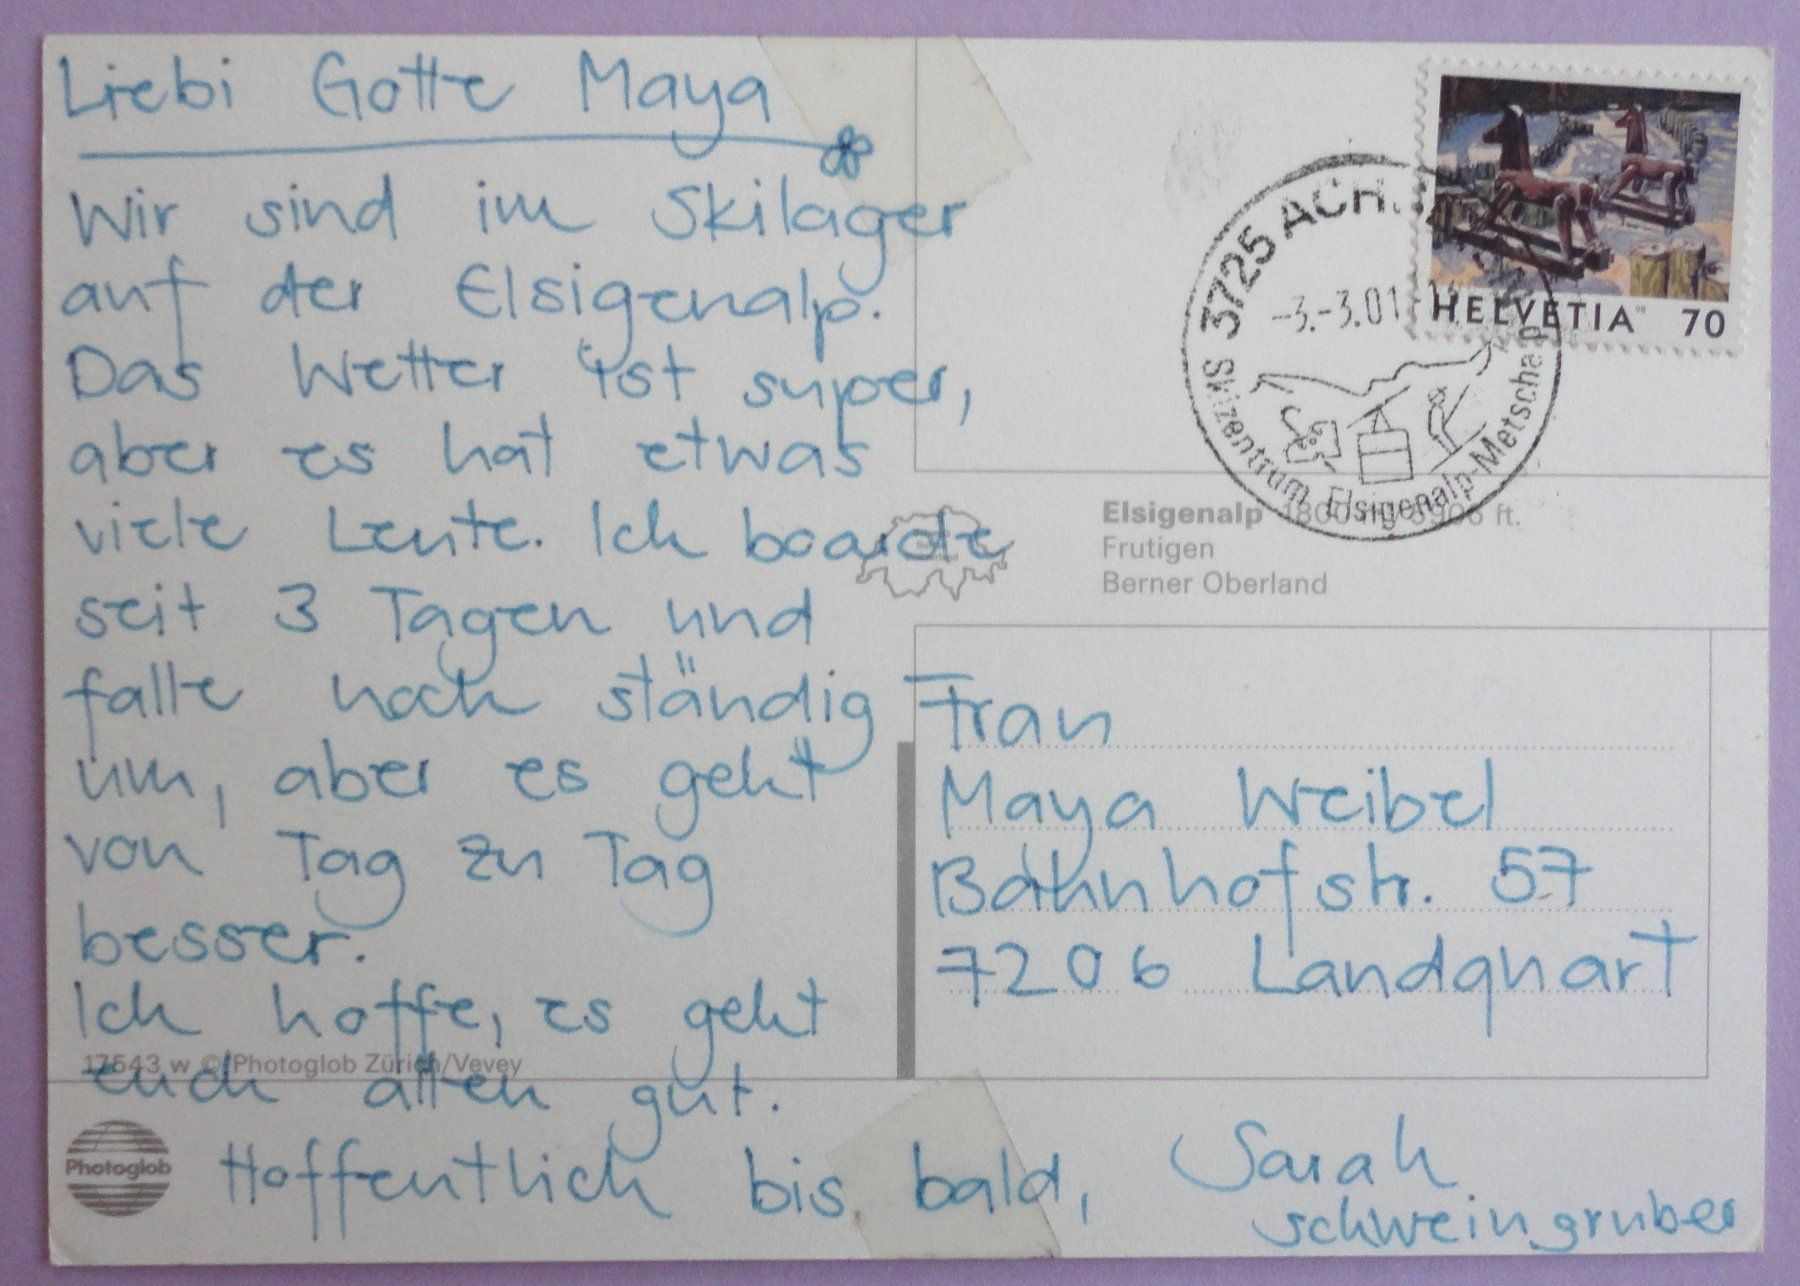 Liebi Gotte Maya
Wir sind im Skilager
auf der Elsigenalp.
Das Wetter ist super,
aber es hat etwas
viele Leute. Ich boarde
seit 3 Tagen und
falle noch ständig
um, aber es geht
von Tag zu Tag
besser.
Ich hoffe, es geht
euch allen gut.
Hoffentlich bis bald,
Sarah
Schweingruber
17543 w © Photoglob Zürich/Vevey
Photoglob
3725 ACH
-3.-3.01-
Skizentrum Elsigenalp-Metschalp
HELVETIA 70
Elsigenalp 1800 m/5906 ft.
Frutigen
Berner Oberland
Frau
Maya Weibel
Bahnhofstr. 57
7206 Landquart